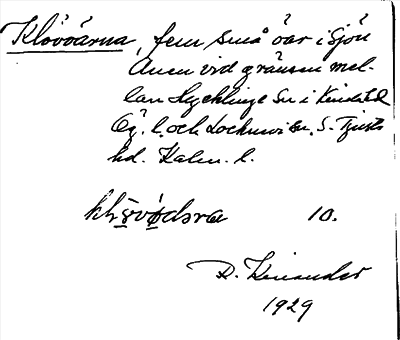 Klövöarna, fem små öar i sjön
Åsen vid gränsen mel-
lan Lycklinge Sn i Kinds hd
Ög. l. och Locknevi sn, S. Tjusts
hd. Kalm. l.
10.
R. Kinander
1929